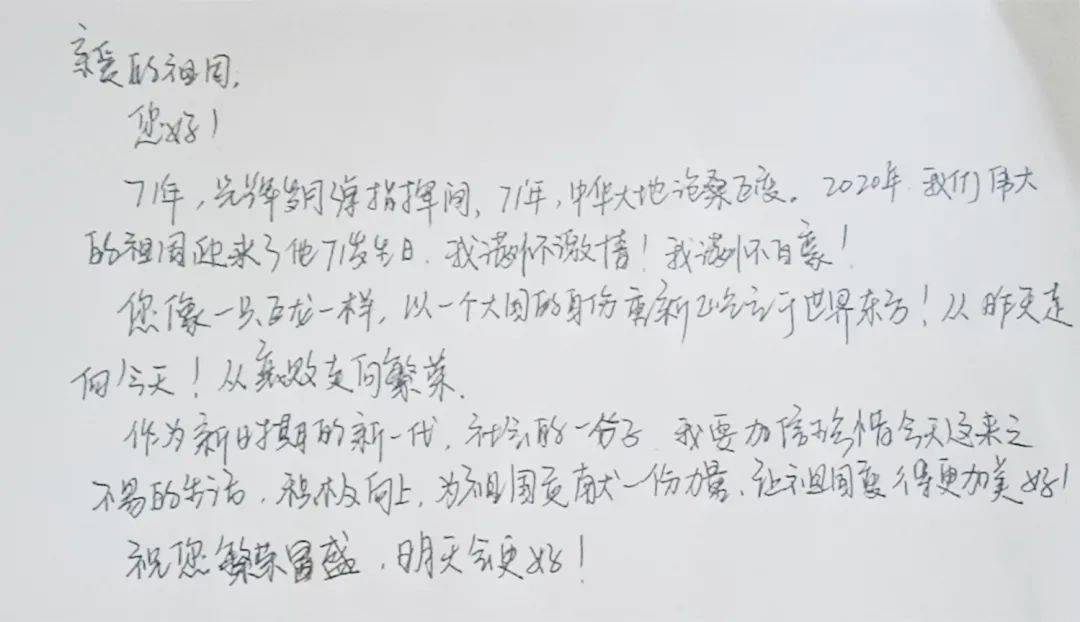 亲爱的祖国,
您好!
71年,光辉岁月弹指挥间,71年,中华大地沧桑巨变。2020年.我们伟大
的祖国迎来了他71岁生日.我满怀激情!我满怀自豪!
您像一只巨龙一样,以一个大国的身份重新屹立于世界东方!从昨天走
向今天!从衰败走向繁荣.
作为新时期的新一代.社会的一份子.我要加倍珍惜今天这来之
不易的生活.积极向上.为祖国贡献一份力量、让祖国变得更加美好!
祝您繁荣富盛,明天会更好!